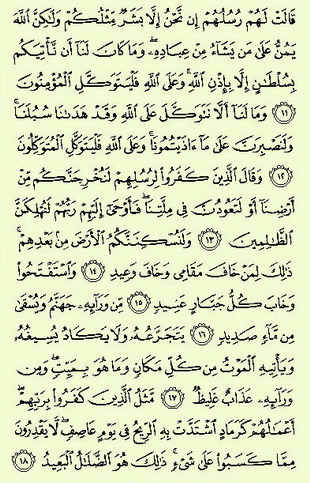 قَالَتْ لَهُمْ رُسُلُهُمْ إِن نَّحْنُ إِلَّا بَشَرٌ مِّثْلُكُمْ وَلَٰكِنَّ اللَّهَ
يَمُنُّ عَلَىٰ مَن يَشَاءُ مِنْ عِبَادِهِ ۖ وَمَا كَانَ لَنَا أَن نَّأْتِيَكُم
بِسُلْطَانٍ إِلَّا بِإِذْنِ اللَّهِ ۚ وَعَلَى اللَّهِ فَلْيَتَوَكَّلِ الْمُؤْمِنُونَ
﴿١١﴾ وَمَا لَنَا أَلَّا نَتَوَكَّلَ عَلَى اللَّهِ وَقَدْ هَدَانَا سُبُلَنَا ۚ
وَلَنَصْبِرَنَّ عَلَىٰ مَا آذَيْتُمُونَا ۚ وَعَلَى اللَّهِ فَلْيَتَوَكَّلِ الْمُتَوَكِّلُونَ
﴿١٢﴾ وَقَالَ الَّذِينَ كَفَرُوا لِرُسُلِهِمْ لَنُخْرِجَنَّكُم مِّنْ
أَرْضِنَا أَوْ لَتَعُودُنَّ فِي مِلَّتِنَا ۖ فَأَوْحَىٰ إِلَيْهِمْ رَبُّهُمْ لَنُهْلِكَنَّ
الظَّالِمِينَ ﴿١٣﴾ وَلَنُسْكِنَنَّكُمُ الْأَرْضَ مِن بَعْدِهِمْ ۚ
ذَٰلِكَ لِمَنْ خَافَ مَقَامِي وَخَافَ وَعِيدِ ﴿١٤﴾ وَاسْتَفْتَحُوا
وَخَابَ كُلُّ جَبَّارٍ عَنِيدٍ ﴿١٥﴾ مِّن وَرَائِهِ جَهَنَّمُ وَيُسْقَىٰ
مِن مَّاءٍ صَدِيدٍ ﴿١٦﴾ يَتَجَرَّعُهُ وَلَا يَكَادُ يُسِيغُهُ
وَيَأْتِيهِ الْمَوْتُ مِن كُلِّ مَكَانٍ وَمَا هُوَ بِمَيِّتٍ ۖ وَمِن
وَرَائِهِ عَذَابٌ غَلِيظٌ ﴿١٧﴾ مَّثَلُ الَّذِينَ كَفَرُوا بِرَبِّهِمْ ۖ
أَعْمَالُهُمْ كَرَمَادٍ اشْتَدَّتْ بِهِ الرِّيحُ فِي يَوْمٍ عَاصِفٍ ۖ لَّا يَقْدِرُونَ
مِمَّا كَسَبُوا عَلَىٰ شَيْءٍ ۚ ذَٰلِكَ هُوَ الضَّلَالُ الْبَعِيدُ ﴿١٨﴾